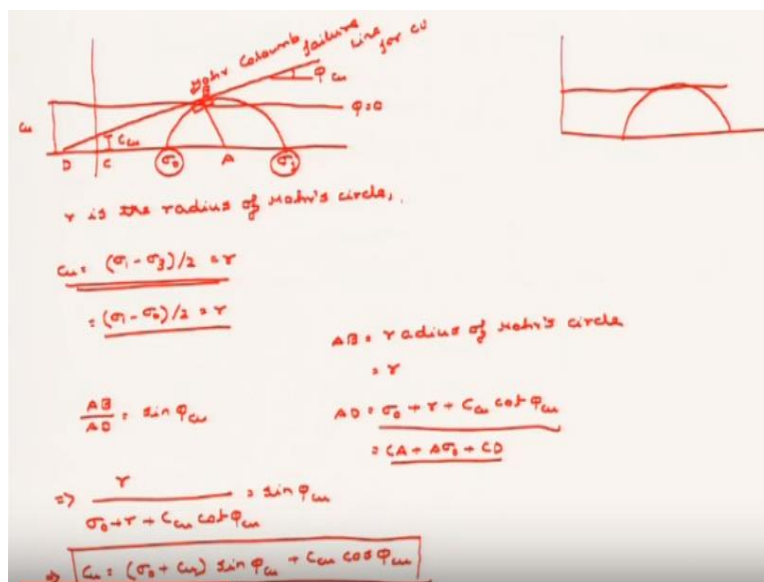 Mohr Coloumb failure line for CU
φcu
Cu
φ=0
Ccu
B
D C σ0 A σ1
r is the radius of Mohr's circle,
Cu = (σ1 - σ3)/2 = r
= (σ1 - σ0)/2 = r
AB = radius of Mohr's circle
= r
AB/AD = sin φcu
AD = σ0 + r + Ccu cot φcu
= CA + Aσ0 + CD
=> r/(σ0 + r + Ccu cot φcu) = sin φcu
=> Cu = (σ0 + Cu) sin φcu + Ccu cos φcu